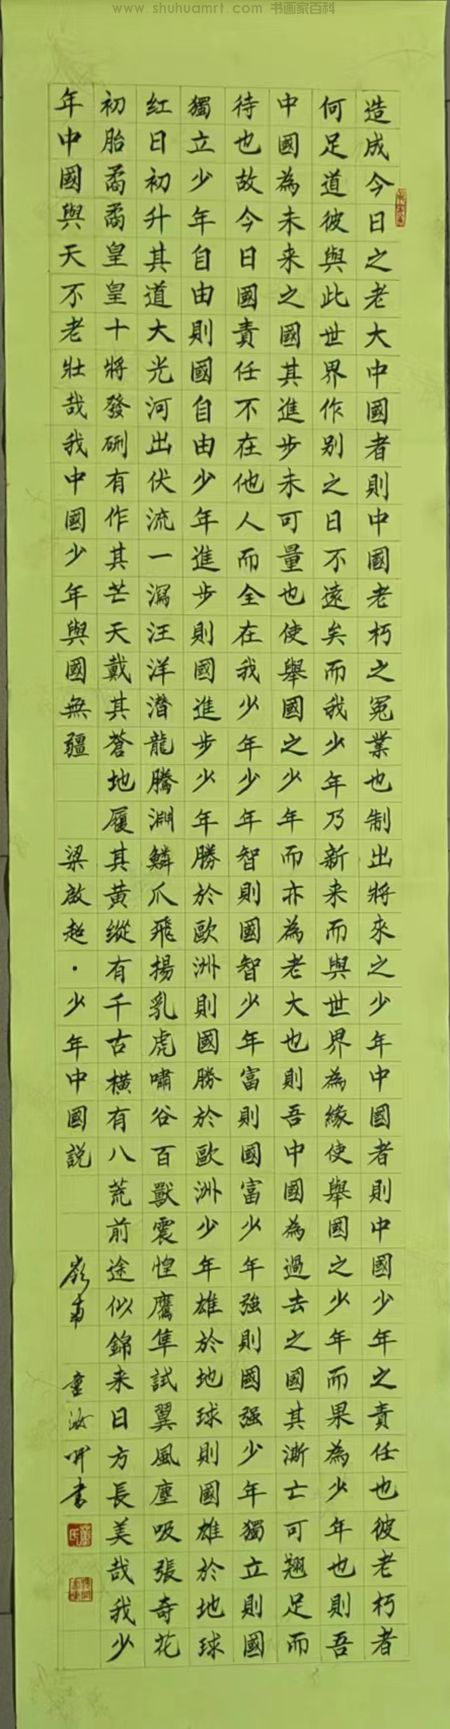 www.shuhuamrt.com 书画家百科
造成今日之老大中國者則中國老朽之冤業也制出將來之少年中國者則中國少年之責任也彼老朽者
何足道彼與此世界作别之日不遠矣而我少年乃新来而與世界為緣使舉國之少年而果為少年也則吾
中國為未来之國其進步未可量也使舉國之少年而亦為老大也則吾中國為過去之國其澌亡可翘足而
待也故今日國責任不在他人而全在我少年少年智則國智少年富則國富少年強則國强少年獨立則國
獨立少年自由則國自由少年進步則國進步少年勝於歐洲則國勝於歐洲少年雄於地球則國雄於地球
红日初升其道大光河出伏流一瀉汪洋潛龍騰淵鱗爪飛揚乳虎嘯谷百獸震惶鷹隼試翼風塵吸張奇花
初胎矞矞皇皇十將發硎有作其芒天戴其蒼地履其黄縱有千古橫有八荒前途似錦来日方長美哉我少
年中國與天不老壯哉我中國少年與國無疆 梁啟超·少年中國説 童汝書